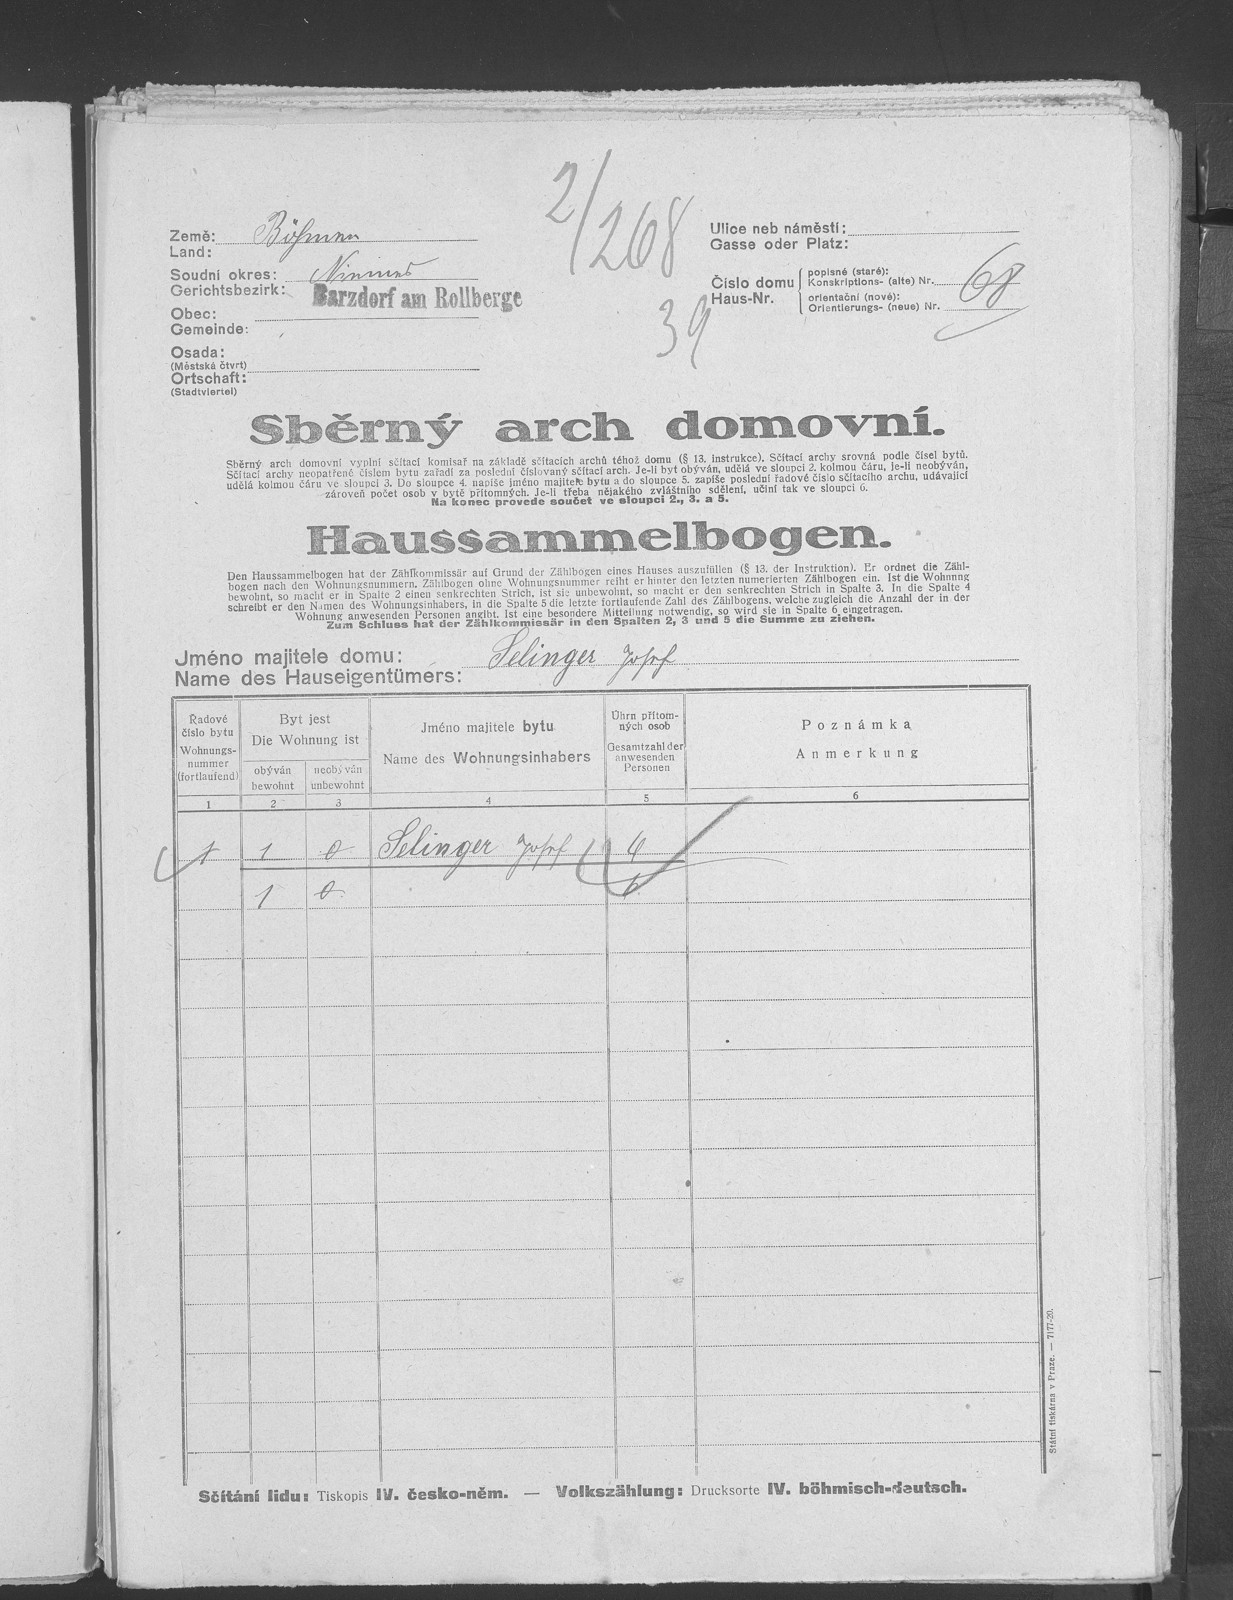 2/268
39
Země: Böhmen
Land:
Soudní okres: Niemes
Gerichtsbezirk:
Barzdorf am Rollberge
Obec:
Gemeinde:
Osada:
(Městská čtvrt)
Ortschaft:
(Stadtviertel)
Ulice neb náměstí:
Gasse oder Platz:
Číslo domu
Haus-Nr.
popisné (staré):
Konskriptions- (alte) Nr. 68
orientační (nové):
Orientierungs- (neue) Nr.
Sběrný arch domovní.
Sběrný arch domovní vyplní sčítací komisař na základě sčítacích archů téhož domu (§ 13. instrukce). Sčítací archy srovná podle čísel bytů.
Sčítací archy neopatřené číslem bytu zařadí za poslední číslovaný sčítací arch. Je-li byt obýván, udělá ve sloupci 2. kolmou čáru, je-li neobýván,
udělá kolmou čáru ve sloupci 3. Do sloupce 4. napíše jméno majitele bytu a do sloupce 5. zapíše poslední řadové číslo sčítacího archu, udávající
zároveň počet osob v bytě přítomných. Je-li třeba nějakého zvláštního sdělení, učiní tak ve sloupci 6.
Na konec provede součet ve sloupci 2., 3. a 5.
Haussammelbogen.
Den Haussammelbogen hat der Zählkommissär auf Grund der Zählbogen eines Hauses auszufüllen (§ 13. der Instruktion). Er ordnet die Zähl-
bogen nach den Wohnungsnummern. Zählbogen ohne Wohnungsnummer reiht er hinter den letzten numerierten Zählbogen ein. Ist die Wohnnng
bewohnt, so macht er in Spalte 2 einen senkrechten Strich, ist sie unbewohnt, so macht er den senkrechten Strich in Spalte 3. In die Spalte 4
schreibt er den Namen des Wohnungsinhabers, in die Spalte 5 die letzte fortlaufende Zahl des Zählbogens, welche zugleich die Anzahl der in der
Wohnung anwesenden Personen angibt. Ist eine besondere Mitteilung notwendig, so wird sie in Spalte 6 eingetragen.
Zum Schluss hat der Zählkommissär in den Spalten 2, 3 und 5 die Summe zu ziehen.
Jméno majitele domu: Selinger Josef
Name des Hauseigentümers:
Řadové
číslo bytu
Wohnungs-
nummer
(fortlaufend)
Byt jest
Die Wohnung ist
obýván
bewohnt
neobýván
unbewohnt
Jméno majitele bytu
Name des Wohnungsinhabers
Úhrn přítom-
ných osob
Gesamtzahl der
anwesenden
Personen
Poznámka
Anmerkung
1 2 3 4 5 6
1 1 0 Selinger Josef 6
1 0 6
Státní tiskárna v Praze. — 7177-20.
Sčítání lidu: Tiskopis IV. česko-něm. — Volkszählung: Drucksorte IV. böhmisch-deutsch.